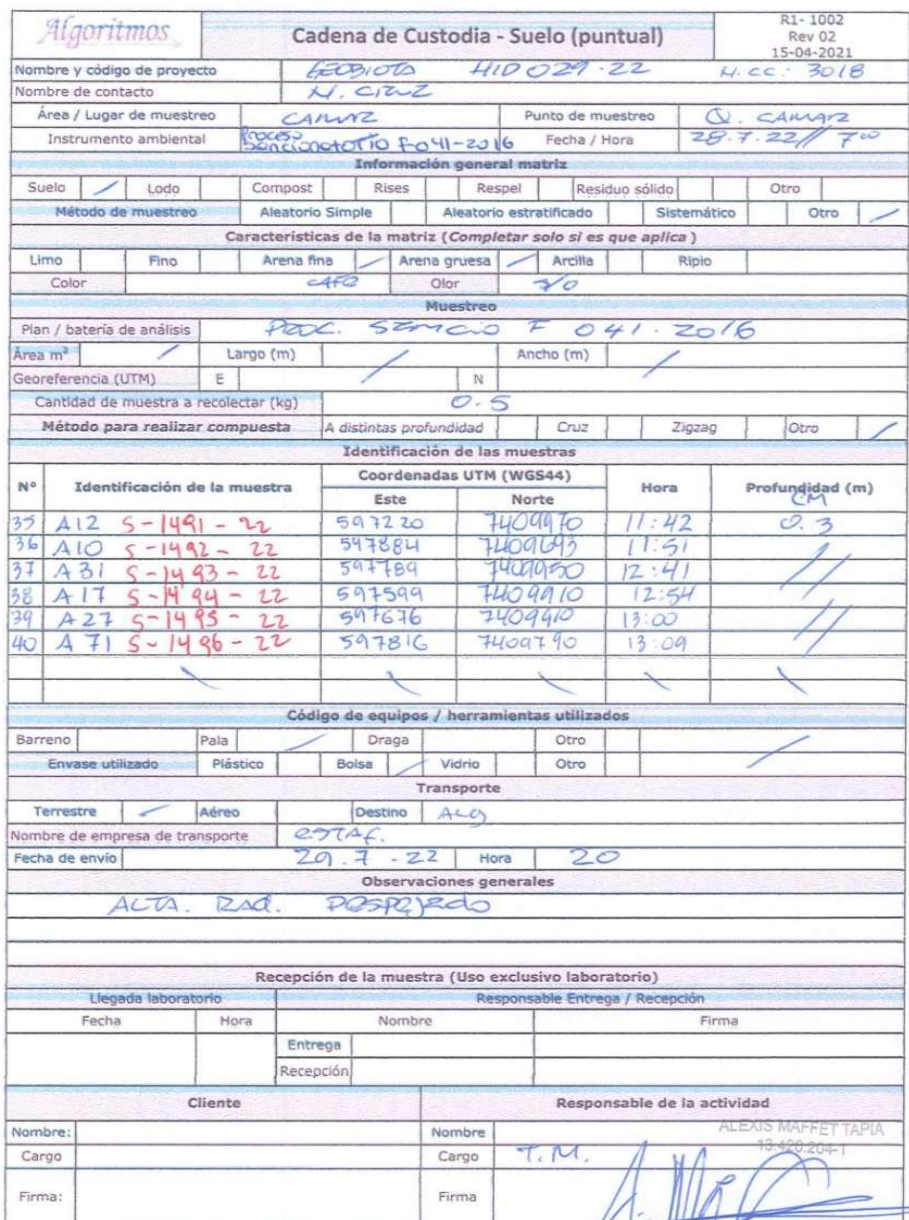 Algoritmos
Cadena de Custodia - Suelo (puntual)
R1- 1002
Rev 02
15-04-2021
Nombre y código de proyecto GEOBIOTA HID029-22 N.CC: 3018
Nombre de contacto N. CRUZ
Área / Lugar de muestreo CAMAR Punto de muestreo Q. CAMAR
Instrumento ambiental Proceso Sancionatorio F-041-2016 Fecha / Hora 28.7.22// 7⁰⁰
Información general matriz
Suelo / Lodo Compost Rises Respel Residuo sólido Otro
Método de muestreo Aleatorio Simple Aleatorio estratificado Sistemático Otro /
Características de la matriz (Completar solo si es que aplica)
Limo Fino Arena fina / Arena gruesa / Arcilla Ripio
Color CAFE Olor S/O
Muestreo
Plan / batería de análisis PROC. F 041-2016
Área m² / Largo (m) / Ancho (m) /
Georeferencia (UTM) E N
Cantidad de muestra a recolectar (kg) 0.5
Método para realizar compuesta A distintas profundidad Cruz Zigzag Otro /
Identificación de las muestras
Nº Identificación de la muestra Coordenadas UTM (WGS44) Hora Profundidad (m)
Este Norte CM
35 A12 S-1491-22 597220 7409970 11:42 0.3
36 A10 S-1492-22 597884 7409693 11:51 //
37 A31 S-1493-22 597789 7409950 12:41
38 A17 S-1494-22 597599 7409910 12:54
39 A27 S-1495-22 597676 7409910 13:00 //
40 A71 S-1496-22 597816 7409790 13:09
Código de equipos / herramientas utilizados
Barreno Pala / Draga Otro /
Envase utilizado Plástico Bolsa / Vidrio Otro
Transporte
Terrestre / Aéreo Destino ALG
Nombre de empresa de transporte ESTAF.
Fecha de envío 29.7-22 Hora 20
Observaciones generales
ALTA. RAD. DESPEJADO
Recepción de la muestra (Uso exclusivo laboratorio)
Llegada laboratorio Responsable Entrega / Recepción
Fecha Hora Nombre Firma
Entrega
Recepción
Cliente Responsable de la actividad
Nombre: Nombre ALEXIS MAFFET TAPIA
13.420.204-1
Cargo Cargo T.M.
Firma: Firma